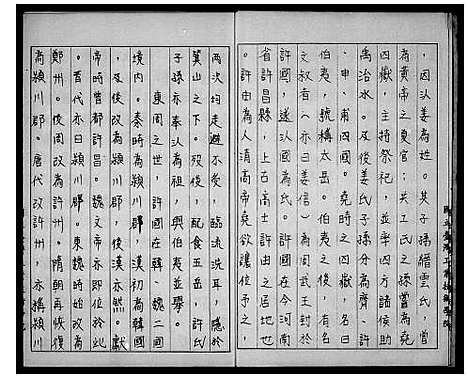 ，因以姜為姓。其子孫縉雲氏，嘗
為黃帝之夏官；共工氏之孫嘗為堯
四嶽，主持祭祀，並與四方諸侯助
禹治水。及後姜氏子孫分為齊、許
、申、甫四國。堯時之四嶽，有名曰
伯夷，號稱太岳。伯夷之後，有名
文叔者（亦曰姜信）為周武王封於
許國，遂以國為氏。許國在今河南
省許昌縣，上古高士許由之居地也
。許由為人清高帝堯欲讓位予之，
兩次均走避不受，臨流洗耳，隱於
箕山之下。歿後，配食五岳，許氏
子孫亦奉以為祖，與伯夷並舉。
東周之世，許國在韓、魏二國
境內。秦時為潁川郡，漢初為韓國
，及後改為潁川，後漢亦然。獻
帝時曾都許昌。魏文帝亦即位於此
。晋代亦曰潁川郡。東魏時始改為
鄭州。後周改為許州。隋朝再恢復
為潁川郡。唐代改許州，亦稱潁川